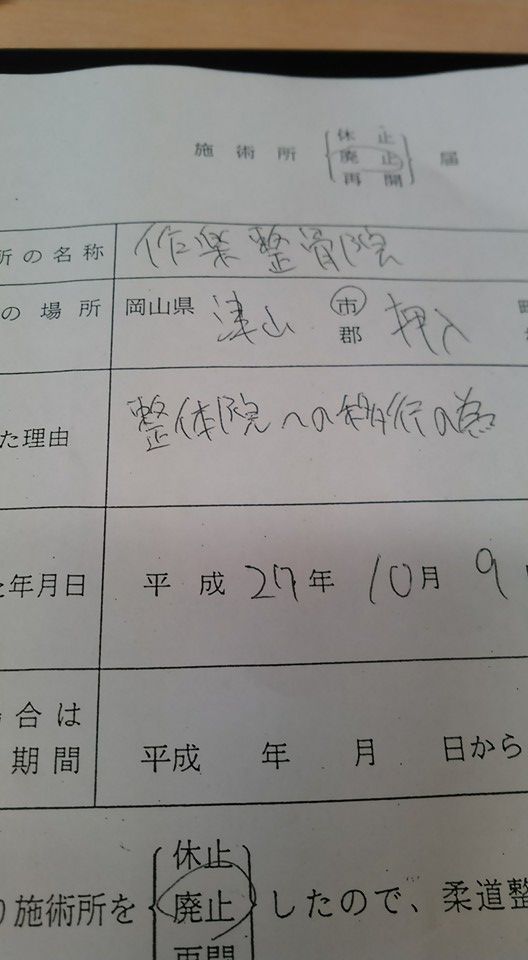 休止
施術所 廃止 届
再開
所の名称 作楽整骨院
の場所 岡山県 津山 市 押入
郡
た理由 整体院への移行の為
た年月日 平成 27年 10月 9
合は
期間 平成 年 月 日から
休止
り施術所を 廃止 したので、柔道整
再開